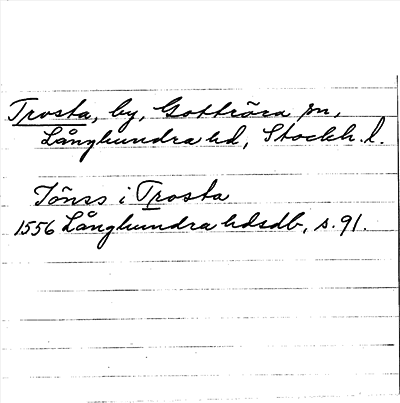 Trosta, by, Gottröra sn,
Långhundra hd, Stockh. l.
Jönss i Trosta
1556 Långhundra hdsdb, s. 91.